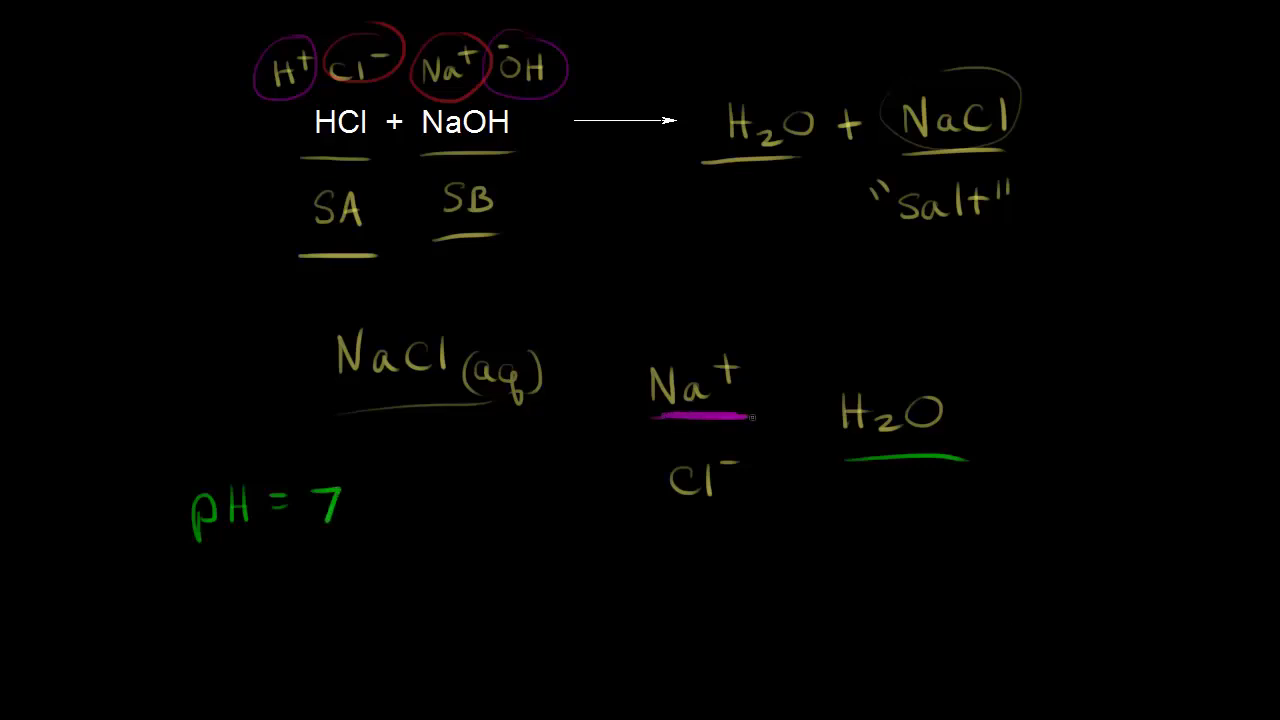 H⁺ Cl⁻ Na⁺ ⁻OH
HCl + NaOH ⟶ H₂O + NaCl
SA SB "Salt"
NaCl(aq) Na⁺ H₂O
Cl⁻
pH = 7